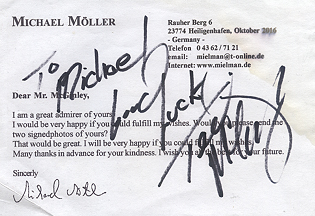 MICHAEL MÖLLER
Rauher Berg 6
23774 Heiligenhafen, Oktober 2016
- Germany -
Telefon 0 43 62 / 71 21
email: mielman@t-online.de
Internet: www.mielman.de
To Michael
Good Luck
Dear Mr. McGinley,
I am a great admirer of yours.
I would be very happy if you could fulfill my wishes. Would you please send me
two signedphotos of yours?
That would be great. I will be very happy if you could fulfill my wishes.
Many thanks in advance for your kindness. I wish you all the best for your future.
Sincerly